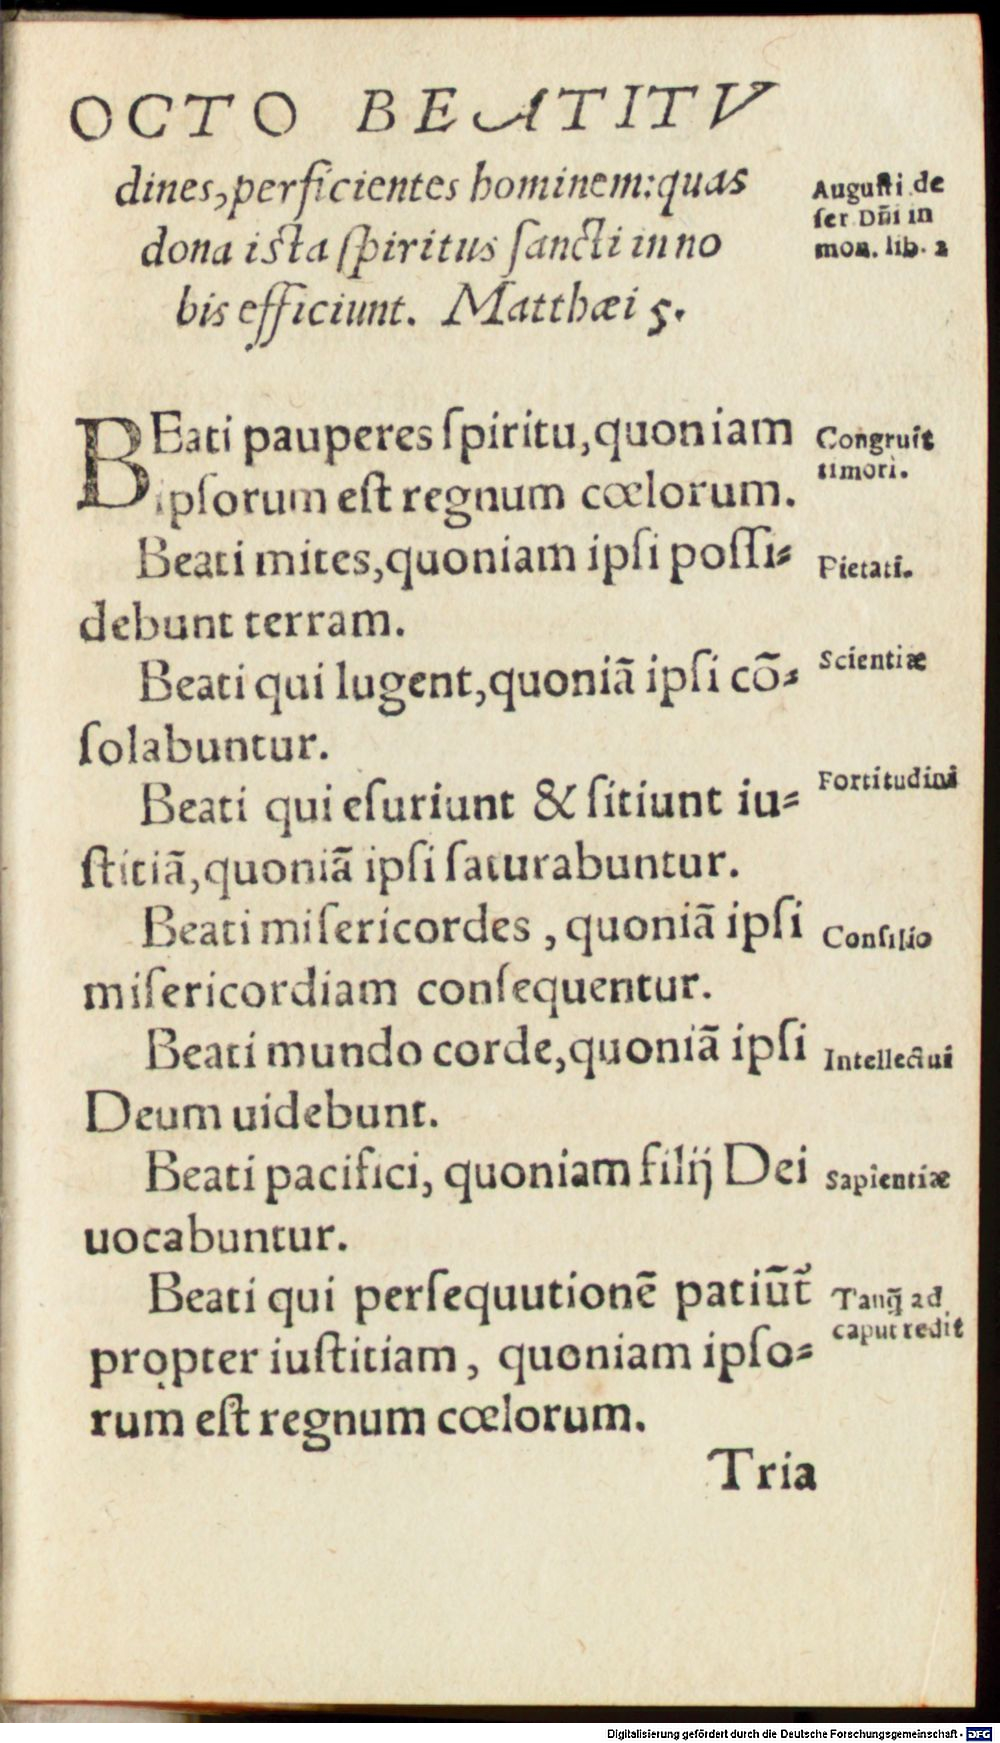 OCTO BEATITV
dines,perficientes hominem:quas
dona ista spiritus sancti in no
bis efficiunt. Matthæi 5.
Augusti de
ſer Dñi in
mon. lib. 2
BEati pauperes ſpiritu,quoniam
ipſorum eſt regnum cœlorum.
Congruit
timori.
Beati mites,quoniam ipſi poſſi⸗
debunt terram.
Pietati.
Beati qui lugent,quoniã ipſi cõ⸗
ſolabuntur.
Scientiæ
Beati qui eſuriunt & ſitiunt iu⸗
ſtitiã,quoniã ipſi ſaturabuntur.
Fortitudini
Beati miſericordes , quoniã ipſi
miſericordiam conſequentur.
Conſilio
Beati mundo corde,quoniã ipſi
Deum uidebunt.
Intellectui
Beati pacifici, quoniam filij Dei
uocabuntur.
Sapientiæ
Beati qui perſequutionẽ patiũt᷑
propter iuſtitiam , quoniam ipſo⸗
rum eſt regnum cœlorum.
Tanq̃ ad
caput redit
Tria
Digitalisierung gefördert durch die Deutsche Forschungsgemeinschaft - DFG